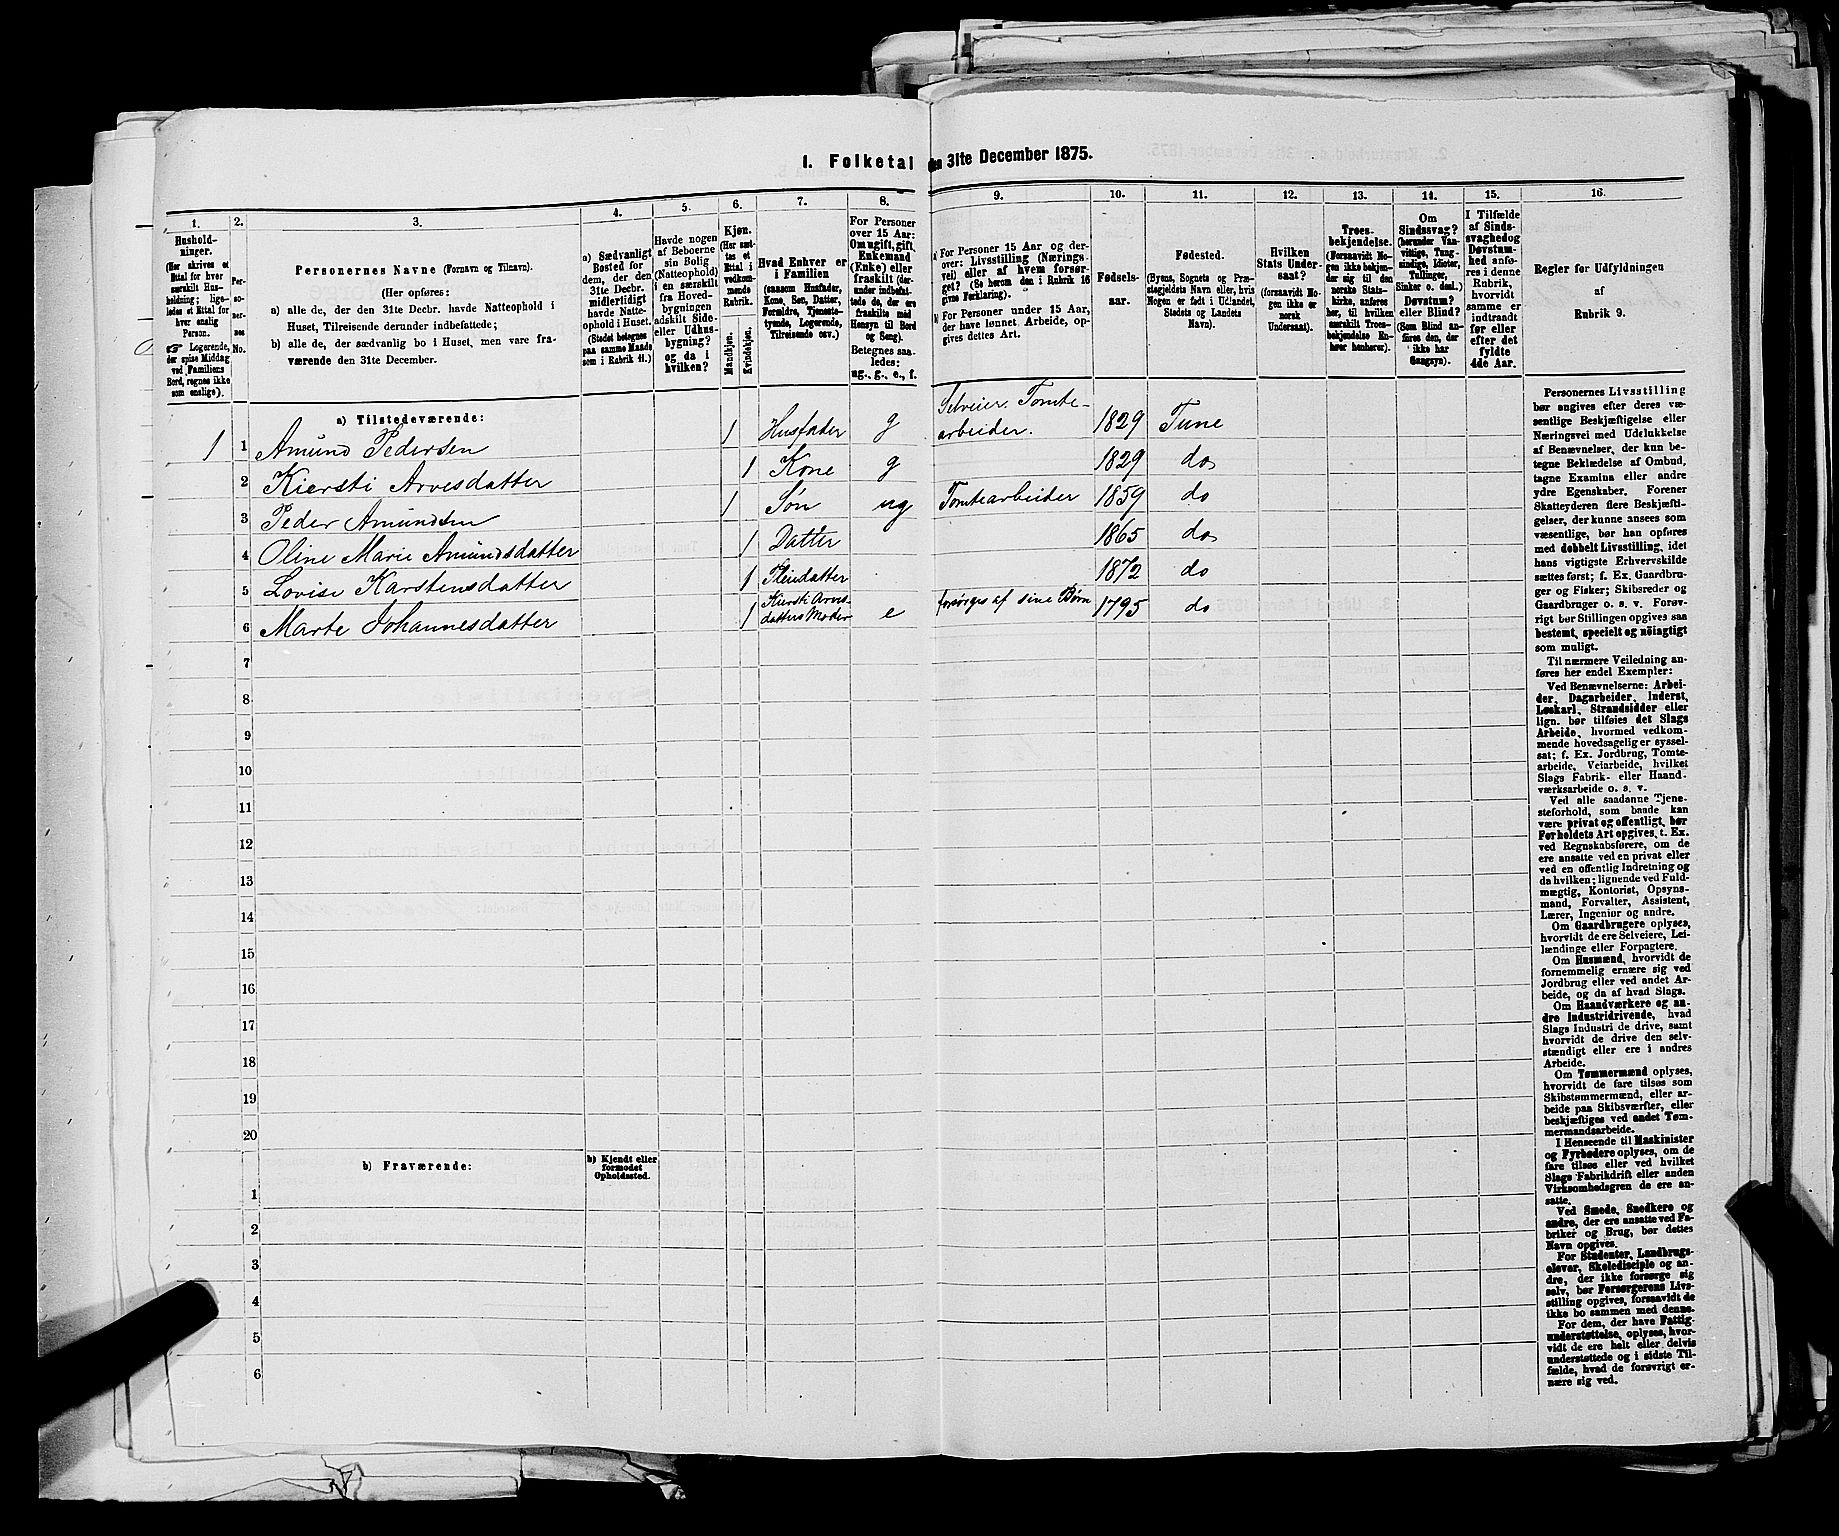 1. Folketal den 31te December 1875.
1.
Hushold-
ninger.
(Her skrives et
Ettal for hver
særskilt Hus-
holdning; lige-
ledes et Ettal for
hver enslig
Person.
☞ Logerende,
der spise Middag
ved Familiens
Bord, regnes ikke
som enslige).
2.
Per-
so-
ner-
nes
No.
3.
Personernes Navne (Fornavn og Tilnavn).
(Her opføres:
a) alle de, der den 31te Decbr. havde Natteophold i
Huset, Tilreisende derunder indbefattede;
b) alle de, der sædvanlig bo i Huset, men vare fra-
værende den 31te December.
4.
a) Sædvanligt
Bosted for
dem, der den
31te Decbr.
midlertidigt
havde Natte-
ophold i Huset.
(Stedet betegnes
paa samme Maade
som i Rubrik 11.)
5.
Havde nogen
af Beboerne
sin Bolig
(Natteophold)
i en særskilt
fra Hoved-
bygningen
adskilt Side-
eller Udhus-
bygning?
og da i
hvilken?
6.
Kjøn.
(Her sæt-
tes et
Ettal i
vedkom-
mende
Rubrik.
Mandkjøn.
Kvindekjøn.
7.
Hvad Enhver er
i Familien
(saasom Husfader,
Kone, Søn, Datter,
Forældre, Tjeneste-
tyende, Logerende,
Tilreisende osv.)
8.
For Personer
over 15 Aar:
Om ugift, gift,
Enkemand
(Enke) eller
fraskilt (der-
under indbefat-
tede de, der ere
fraskilte med
Hensyn til Bord
og Seng).
Betegnes saa-
ledes:
ug., g., e., f.
9.
a) For Personer 15 Aar og der-
over: Livsstilling (Nærings-
vei) eller af hvem forsør-
get? (Se herom den i Rubrik 16
givne Forklaring).
b) For Personer under 15 Aar,
der have lønnet Arbeide, op-
gives dettes Art.
10.
Fødsels-
aar.
11.
Fødested.
(Byens, Sognets og Præ-
stegjeldets Navn eller, hvis
Nogen er født i Udlandet,
Stedets og Landets
Navn).
12.
Hvilken
Stats Under-
saat?
(forsaavidt No-
gen ikke er
norsk
Undersaat).
13.
Troes-
bekjendelse.
(Forsaavidt No-
gen ikke bekjen-
der sig til den
norske Stats-
kirke, anføres
her, til hvilken
særskilt Troes-
bekjendelse En-
hver henhører).
14.
Om
Sindssvag?
(herunder Van-
vittige, Tung-
sindige, Idioter,
Tullinger,
Sinker o. desl.)
Døvstum?
eller Blind?
(Som Blind an-
føres den, der
ikke har
Gangsyn).
15.
I Tilfælde
af Sinds-
svaghed og
Døvstum-
hed anfø-
res i denne
Rubrik,
hvorvidt
samme er
indtraadt
før eller
efter det
fyldte
4de Aar.
16.
Regler for Udfyldningen
af
Rubrik 9.
a) Tilstedeværende:
1 1 Amund Pedersen 1 Husfader g Selveier. Tomte-
arbeider. 1829 Tune
2 Kiersti Arvesdatter 1 Kone g 1829 do
3 Peder Amundsen 1 Søn ug Tomtearbeider 1859 do
4 Oline Marie Amundsdatter 1 Datter 1865 do
5 Lovise Karstensdatter 1 Pleiedatter 1872 do
6 Marte Johannesdatter 1 Kiersti Arves-
datters Moder e forsørges af sine Børn 1795 do
7
8
9
10
11
12
13
14
15
16
17
18
19
20
b) Fraværende:
b) Kjendt eller
formodet
Opholdssted.
1
2
3
4
5
6
Personernes Livsstilling
bør angives efter deres væ-
sentlige Beskjæftigelse eller
Næringsvei med Udelukkelse
af Benævnelser, der kun be-
tegne Beklædelse af Ombud,
tagne Examina eller andre
ydre Egenskaber. Forener
Skatteyderen flere Beskjæfti-
gelser, der kunne ansees som
væsentlige, bør han opføres
med dobbelt Livsstilling, idet
hans vigtigste Erhvervskilde
sættes først; f. Ex. Gaardbru-
ger og Fisker; Skibsreder og
Gaardbruger o. s. v. Forøv-
rigt bør Stillingen opgives saa
bestemt, specielt og nöiagtigt
som muligt.
Til nærmere Veiledning an-
føres her endel Exempler:
Ved Benævnelserne: Arbei-
der, Dagarbeider, Inderst,
Løskarl, Strandsidder eller
lign. bør tilføies det Slags
Arbeide, hvormed vedkom-
mende hovedsagelig er syssel-
sat; f. Ex. Jordbrug, Tomte-
arbeide, Veiarbeide, hvilket
Slags Fabrik- eller Haand-
værksarbeide o. s. v.
Ved alle saadanne Tjene-
steforhold, som baade kan
være privat og offentligt, bør
Forholdets Art opgives, t. Ex.
ved Regnskabsførere, om de
ere ansatte ved en privat eller
ved en offentlig Indretning og
da hvilken; lignende ved Fuld-
mægtig, Kontorist, Opsyns-
mand, Forvalter, Assistent,
Lærer, Ingeniør og andre.
Om Gaardbrugere oplyses,
hvorvidt de ere Selveiere, Lei-
lændinge eller Forpagtere.
Om Husmænd, hvorvidt de
fornemmelig ernære sig ved
Jordbrug eller ved andet Ar-
beide, og da af hvad Slags.
Om Haandværkere og an-
dre Industridrivende, hvad
Slags Industri de drive, samt
hvorvidt de drive den selv-
stændigt eller ere i andres
Arbeide.
Om Tømmermænd oplyses,
hvorvidt de fare tilsøs som
Skibstømmermænd, eller ar-
beide paa Skibsværfter, eller
beskjæftiges ved andet Tøm-
mermandsarbeide.
I Henseende til Maskinister
og Fyrbødere oplyses, om de
fare tilsøs eller ved hvilket
Slags Fabrikdrift eller anden
Virksomhedsgren de ere an-
satte.
Ved Smede, Snedkere og
andre, der ere ansatte ved Fa-
briker og Brug, bør dettes
Navn opgives.
For Studenter, Landbrugs-
elever, Skoledisciple og an-
dre, der ikke forsørge sig
selv, bør Forsørgerens Livs-
stilling opgives, forsaavidt de
ikke bo sammen med denne.
For dem, der have Fattig-
understøttelse, oplyses, hvor-
vidt de ere helt eller delvis
understøttede og i sidste Til-
fælde, hvad de forøvrigt er-
nære sig ved.